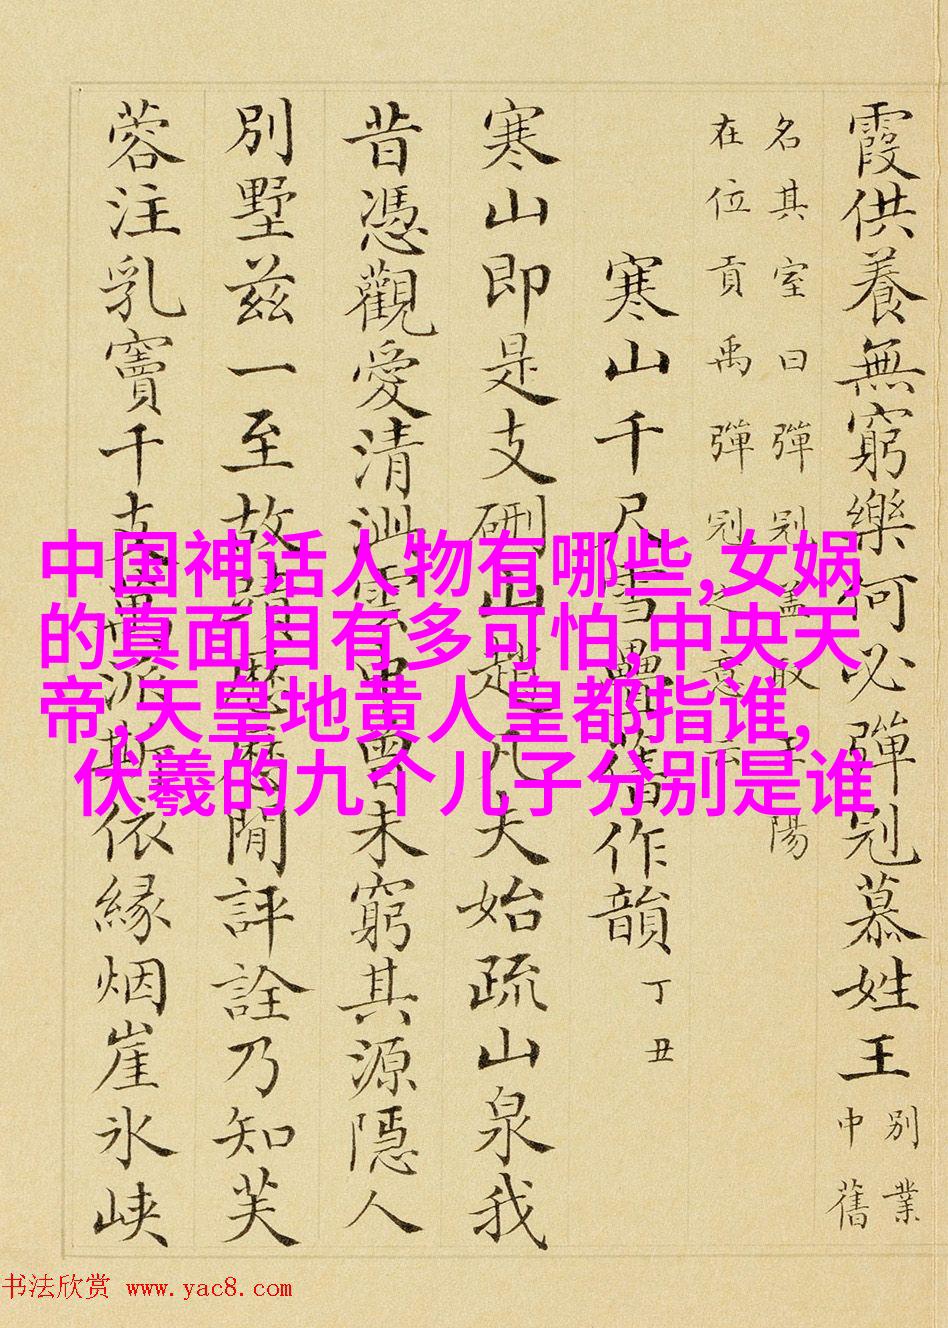 霞供養無窮樂何必彈冠慕姓王
別業
中舊
名其室曰彈冠蓋取王陽
在位貢禹彈冠之意云
寒山千尺雪疊舊作韻 丁丑
寒山即是支硎山趙凡夫始疏山泉我
昔憑觀愛清泚雪曾未窮其源隱人
別墅茲一至故蹟歷歷閒評詮乃知芙
蓉注乳竇千支萬派斯依緣烟崖氷峽
中国神话人物有哪些,女娲
的真面目有多可怕,中央天
帝,天皇地黄人皇都指谁,
伏羲的九个儿子分别是谁
书法欣赏 www.yac8.com